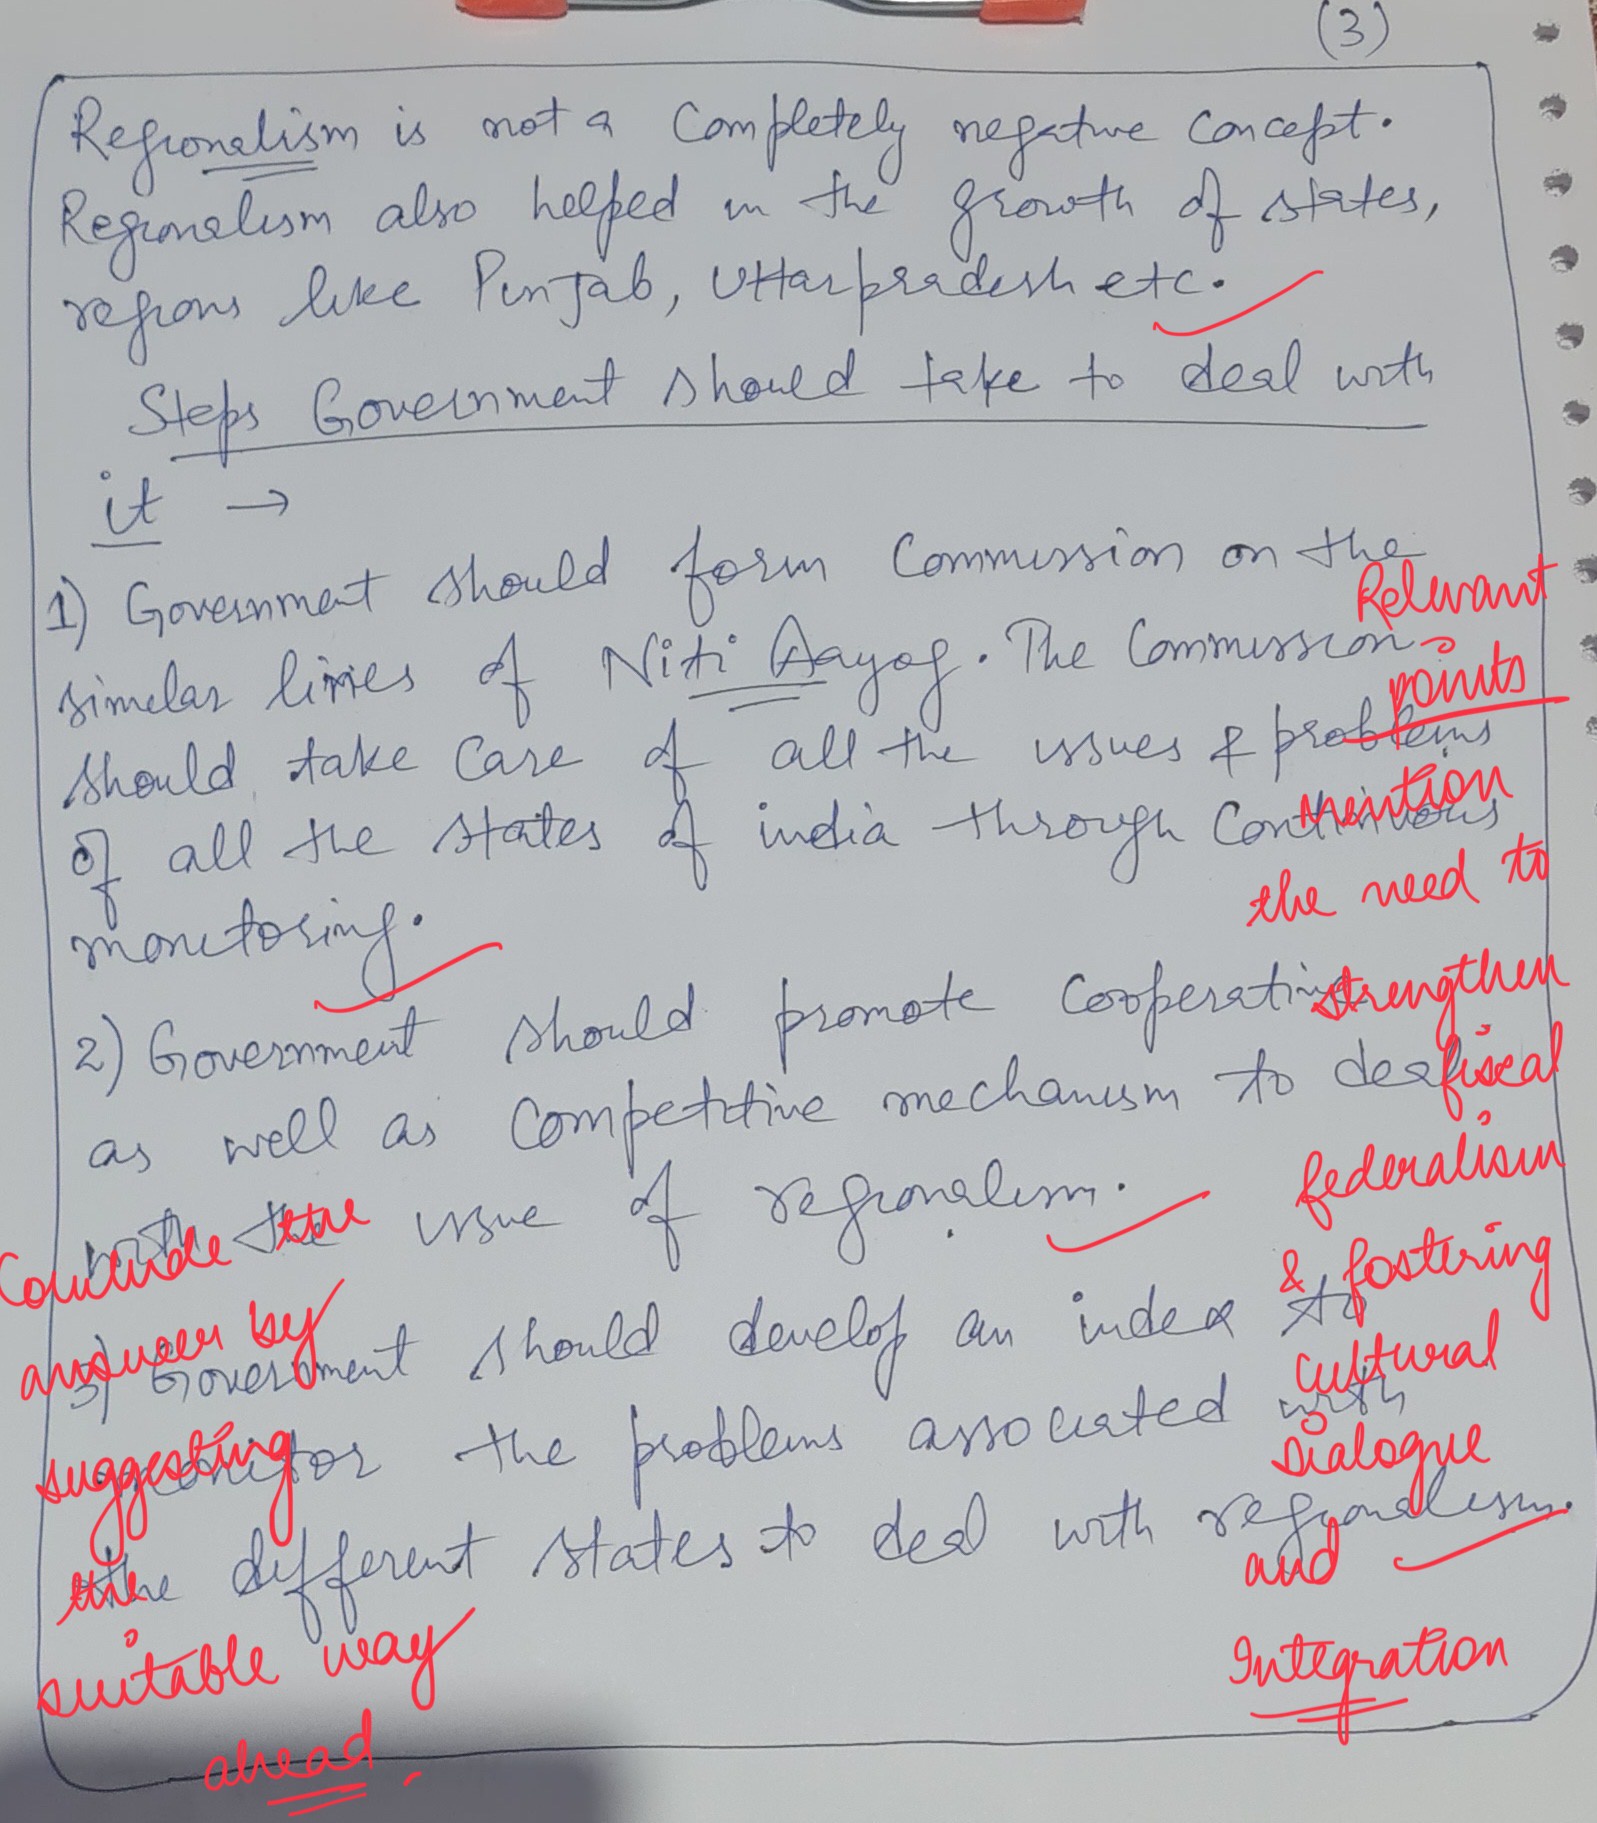 (3)
Regionalism is not a completely negative concept.
Regionalism also helped in the growth of states,
regions like Punjab, Uttarpradesh etc.
Steps Government should take to deal with
it →
1) Government should form Commission on the
similar lines of Niti Aayog. The Commission
should take care of all the issues & problems
of all the states of india through Continuous
monitoring.
2) Government should promote Cooperative
as well as Competitive mechanism to deal
with the issue of regionalism.
3) Government should develop an index to
monitor the problems associated with
the different states to deal with regionalism.
Relevant
points
Mention
the need to
strengthen
fiscal
federalism
& fostering
cultural
Dialogue
and
Integration
Conclude the
answer by
suggesting
the
suitable way
ahead.